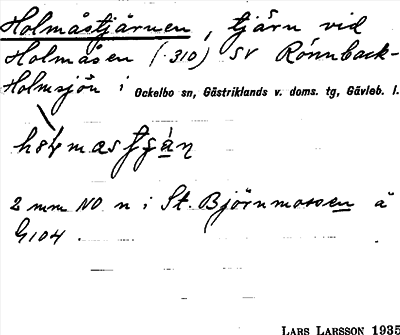 Holmåstjärnen, tjärn vid
Holmåsen (·310) SV Rönnback-
Holmsjön i Ockelbo sn, Gästriklands v. doms. tg, Gävleb. l.
2 mm NO n i St. Björnmossen å
G104
LARS LARSSON 1935